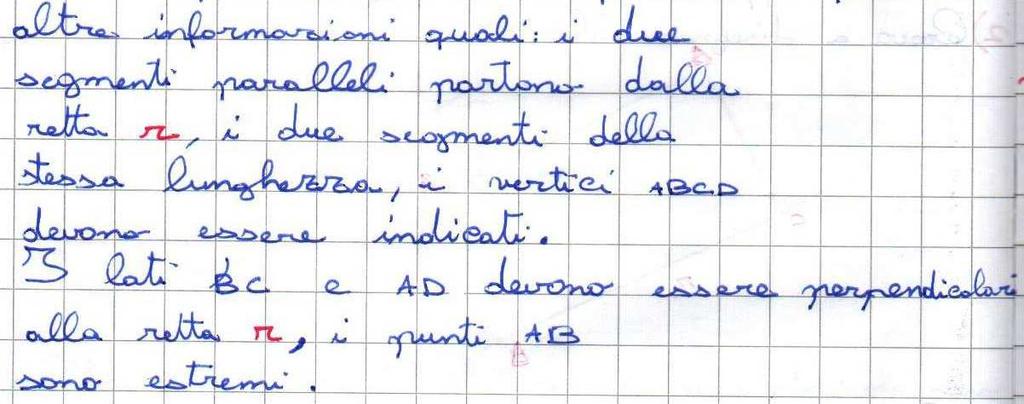 altre informazioni quali: i due
segmenti paralleli partono dalla
retta r, i due segmenti della
stessa lunghezza, i vertici ABCD
devono essere indicati.
I lati BC e AD devono essere perpendicolari
alla retta r, i punti AB
sono estremi.